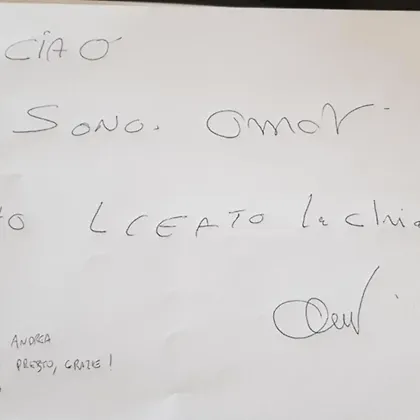 CIAO
SONO. OMAR
LCEATO la chia
ANDREA
PRESTO, GRAZIE!